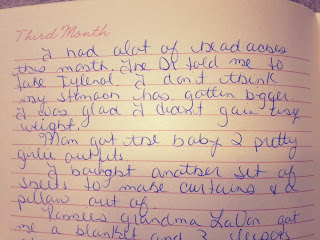 Third Month
I had alot of headaches
this month. The Dr told me to
take Tylenol. I don't think
my stomach has gotten bigger.
I was glad I didn't gain any
weight.
Mom got the baby 2 pretty
girlie outfits.
I bought another set of
sheets to make curtains & a
pillow out of.
grandma LaVon got
me a blanket and 3 sleepers